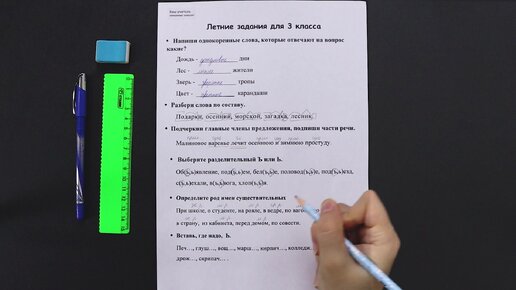 Летние задания для 3 класса
• Напиши однокоренные слова, которые отвечают на вопрос
какие?
Дождь - дождевые дни
Лес - лесные жители
Зверь - звериные тропы
Цвет - цветные карандаши
• Разбери слова по составу.
Подарки, осенний, морской, загадка, лесник.
• Подчеркни главные члены предложения, подпиши части речи.
Малиновое варенье лечит осеннюю и зимнюю простуду.
• Выберите разделительный Ъ или Ь.
Об(ъ,ь)явление, под(ъ,ь)ем, бел(ъ,ь)е, половод(ъ,ь)е, под(ъ,ь)езд,
с(ъ,ь)ехали, в(ъ,ь)юга, хлоп(ъ,ь)я.
• Определите род имен существительных
При школе, о студенте, на рояле, в ведре, по
в страну, из кабинета, перед домом, по совести.
• Вставь, где надо, Ь.
Печ…, глуш…, вощ…, марш…, кирпич…, колледж…
дрож…, скрипач… .